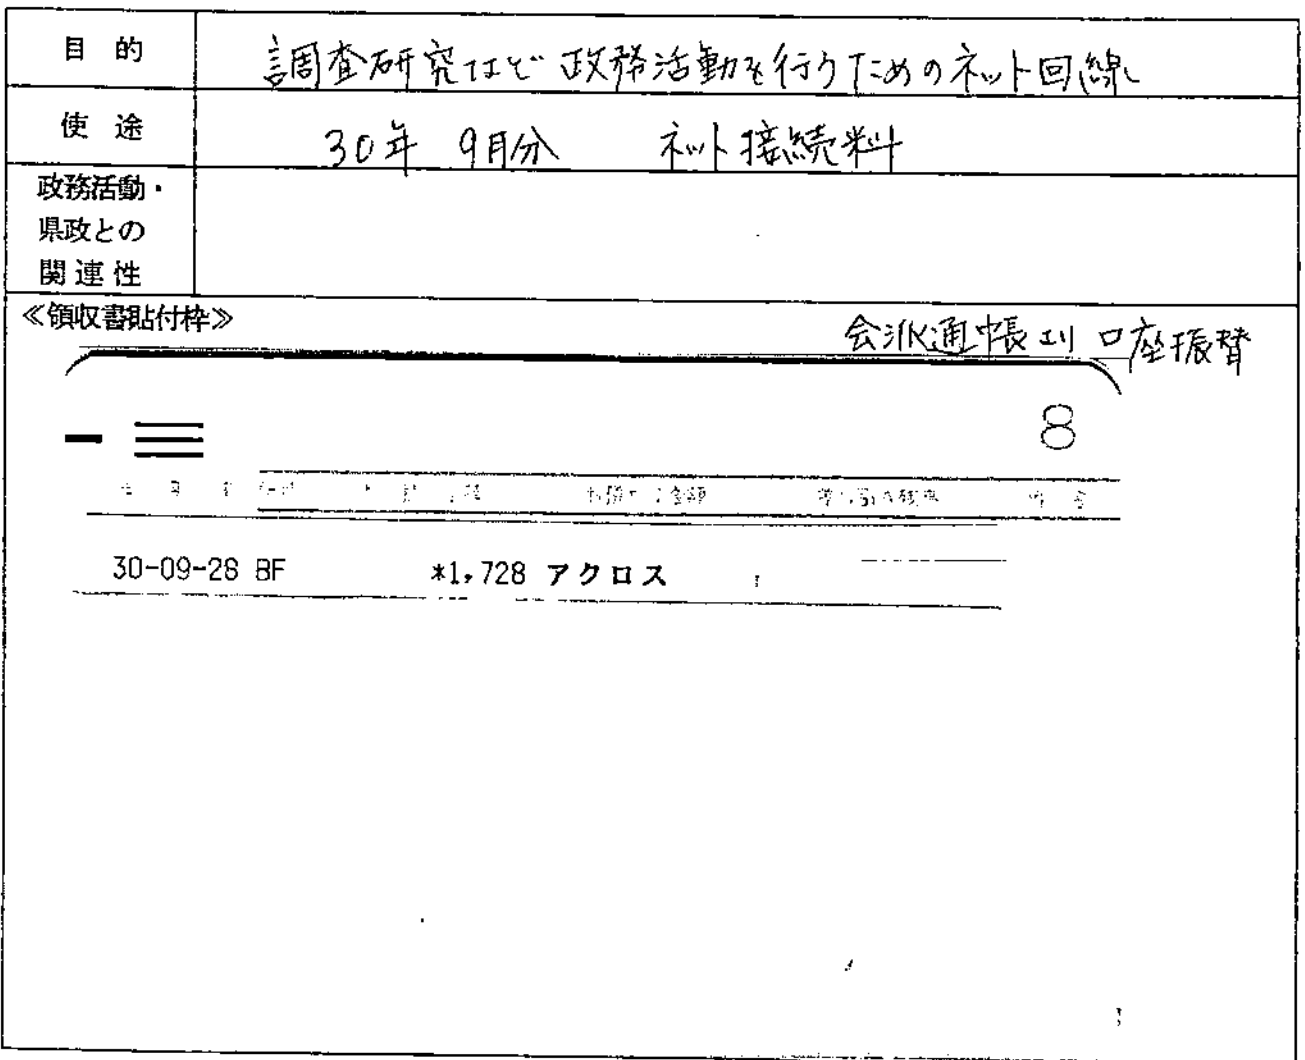 目的 調査研究など政務活動を行うためのネット回線
使途 30年 9月分 ネット接続料
政務活動・
県政との
関連性
≪領収書貼付枠≫
会派通帳より 口座振替
8
30-09-28 BF *1,728 アクロス